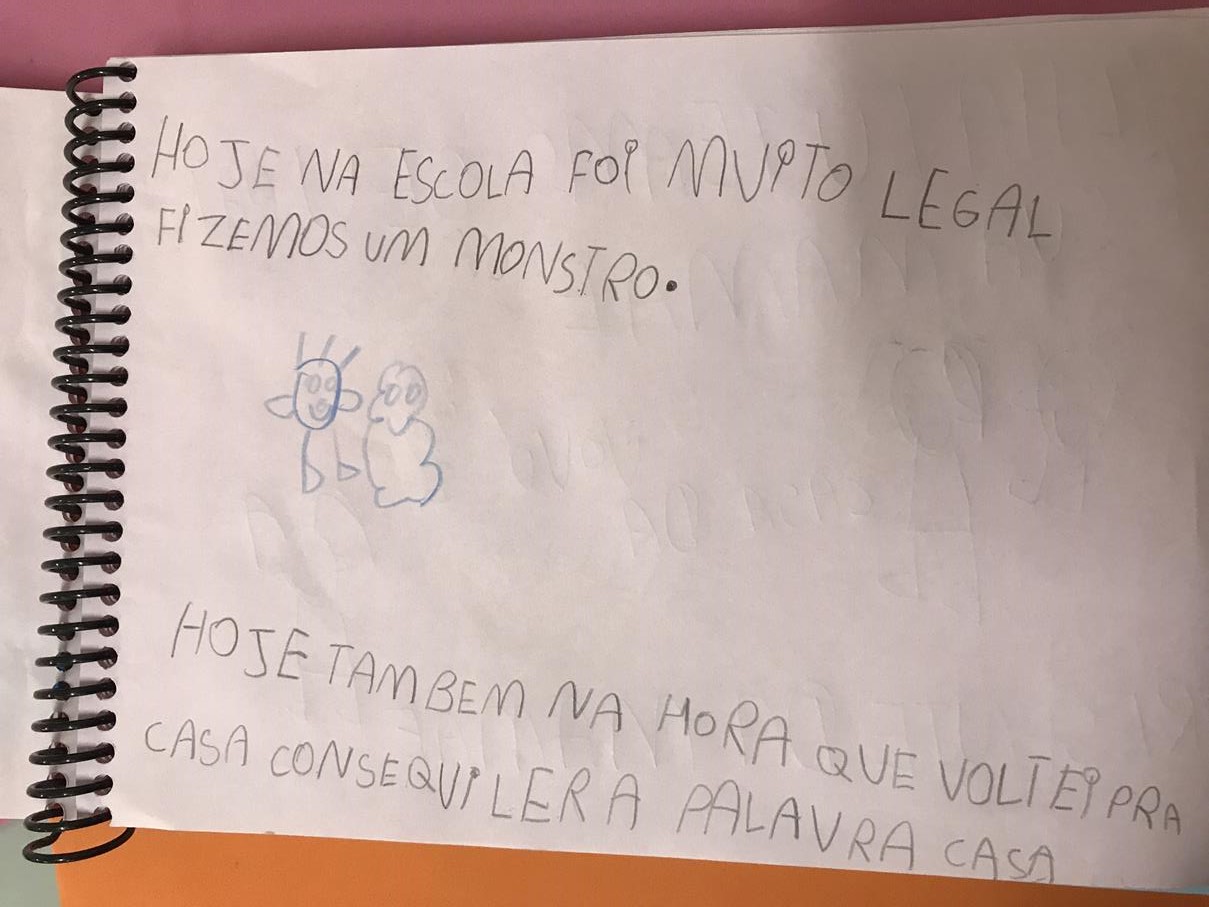 HOJE NA ESCOLA FOI MUITO LEGAL
FIZEMOS UM MONSTRO.
HOJE TAMBEM NA HORA QUE VOLTEI PRA
CASA CONSEQUI LER A PALAVRA CASA